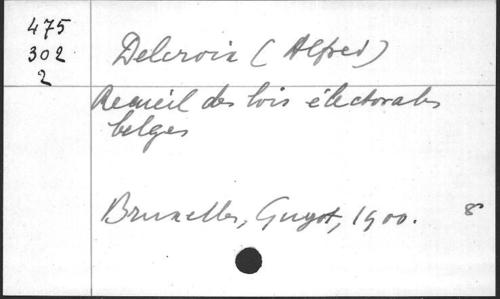 475
302
2
Delcroix (Alfred)
Recueil des lois électorales
belges
Bruxelles, Guyot, 1900. 8